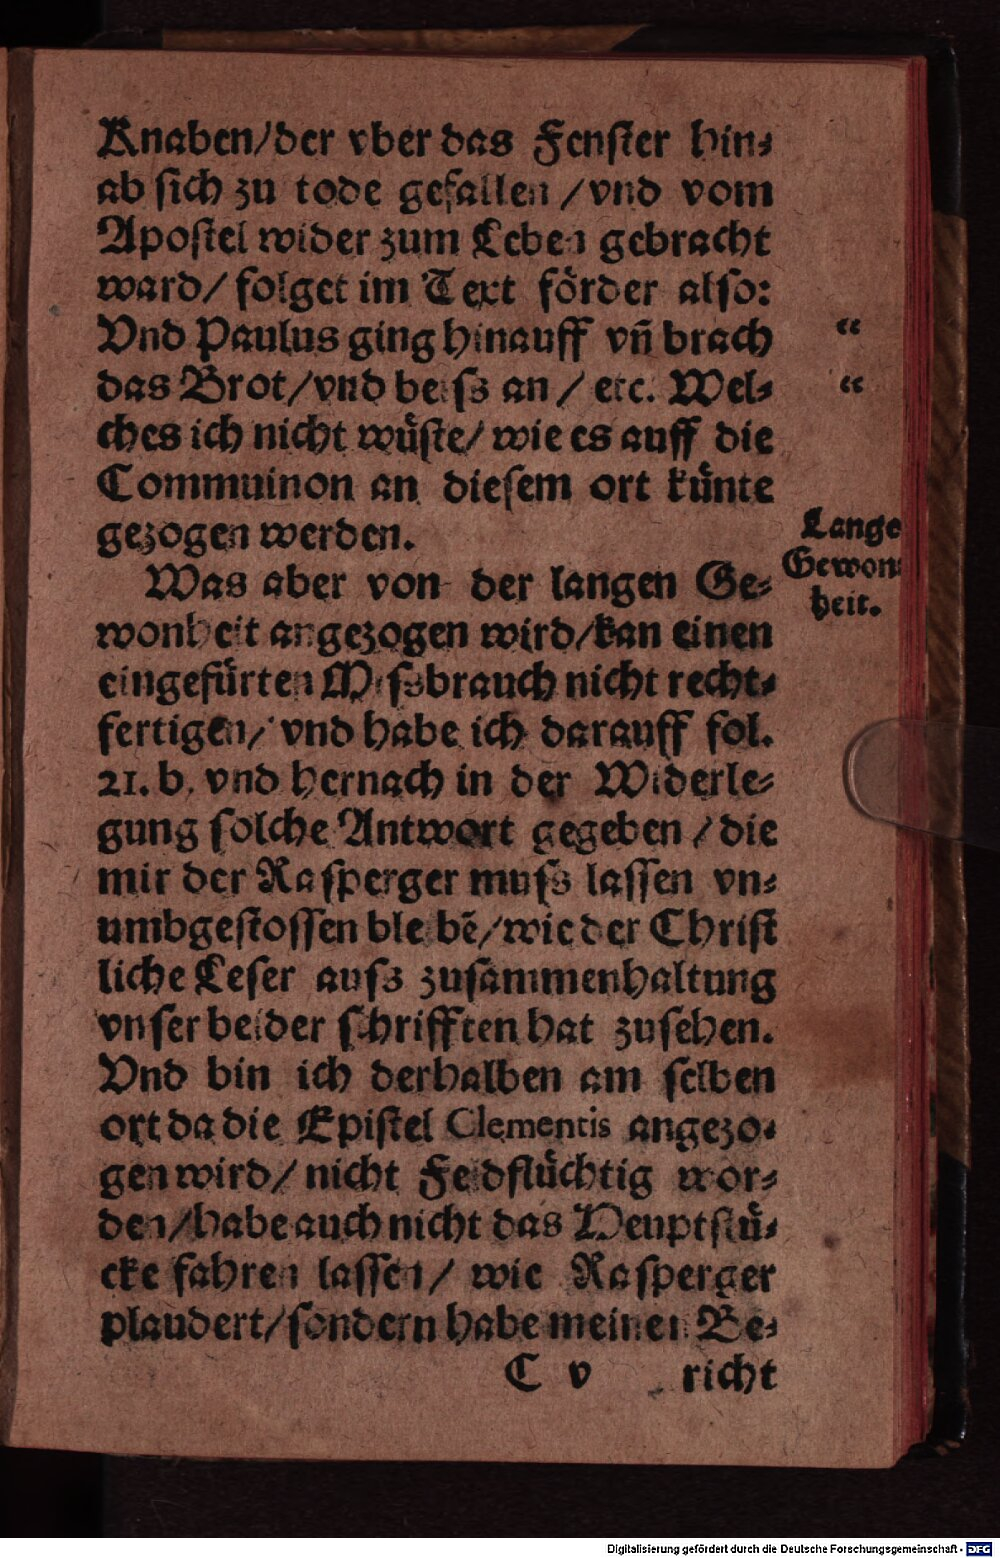 Knaben/der vber das Fenster hin⸗
ab sich zu tode gefallen /vnd vom
Apostel wider zum Leben gebracht
ward/ folget im Text förder also:
Vnd Paulus ging hinauff vñ brach
“
das Brot/vnd beiss an / etc. Wel⸗
“
ches ich nicht wüste/ wie es auff die
Commuinon an diesem ort künte
gezogen werden.
Lange
Gewon⸗
heit.
Was aber von der langen Ge⸗
wonheit angezogen wird/kan einen
eingefürten Missbrauch nicht recht⸗
fertigen/ vnd habe ich darauff fol.
21. b. vnd hernach in der Widerle⸗
gung solche Antwort gegeben / die
mir der Rasperger muss lassen vn⸗
umbgestossen bleibē/wie der Christ
liche Leser auss zusammenhaltung
vnser beider schrifften hat zusehen.
Vnd bin ich derhalben am selben
ort da die Epistel Clementis angezo⸗
gen wird/ nicht Feldflüchtig wor⸗
den/habe auch nicht das Heuptstü⸗
cke fahren lassen/ wie Rasperger
plaudert/sondern habe meinen Be⸗
C v richt
Digitalisierung gefördert durch die Deutsche Forschungsgemeinschaft - DFG